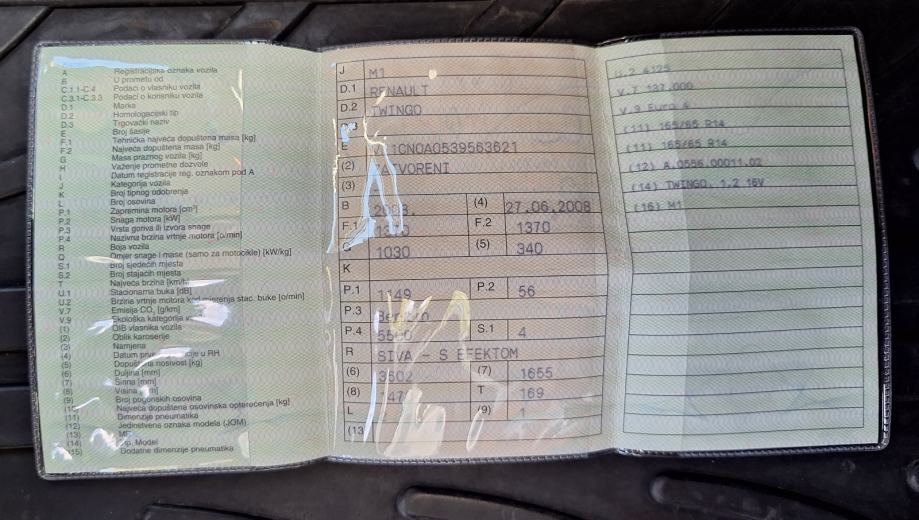 A Registracijska oznaka vozila
B U prometu od
C.1.1-C.4 Podaci o vlasniku vozila
C.3.1-C.3.3 Podaci o korisniku vozila
D.1 Marka
D.2 Homologacijski tip
D.3 Trgovački naziv
E Broj šasije
F.1 Tehnička najveća dopuštena masa [kg]
F.2 Najveća dopuštena masa [kg]
G Masa praznog vozila [kg]
H Važenje prometne dozvole
I Datum registracije reg. oznakom pod A
J Kategorija vozila
K Broj tipnog odobrenja
L Broj osovina
P.1 Zapremina motora [cm³]
P.2 Snaga motora [kW]
P.3 Vrsta goriva ili izvora snage
P.4 Nazivna brzina vrtnje motora [o/min]
R Boja vozila
Q Omjer snage i mase (samo za motocikle) [kW/kg]
S.1 Broj sjedećih mjesta
S.2 Broj stajaćih mjesta
T Najveća brzina [km/h]
U.1 Stacionarna buka [dB]
U.2 Brzina vrtnje motora kod mjerenja stac. buke [o/min]
V.7 Emisija CO₂ [g/km]
V.9 Ekološka kategorija
(1) OIB vlasnika vozila
(2) Oblik karoserije
(3) Namjena
(4) Datum u RH
(5) nosivost [kg]
(6) Duljina [mm]
(7) Širina [mm]
(8) Visina
(9) Broj pogonskih osovina
(10) Najveća dopuštena osovinska opterećenja [kg]
(11) Dimenzije pneumatika
(12) Jedinstvena oznaka modela (JOM)
(13)
(14) Model
(15) Dodatne dimenzije pneumatika
J M1
D.1 RENAULT
D.2 TWINGO
E 1CNOA0539563621
(2) ATVORENI
(3) -
B (4) 27.06.2008
F.1 F.2 1370
1030 (5) 340
K
P.1 1149 P.2 56
P.3
P.4 S.1 4
R SIVA - S EFEKTOM
(6) 3602 (7) 1655
(8) T 169
L (9) 1
(13
U.2 4125
V.7 137.000
V.9 Euro 4
(11) 165/65 R14
(11) 165/65 R14
(12) A.0556.00011.02
(14) TWINGO. 1.2 16V
(16) M1